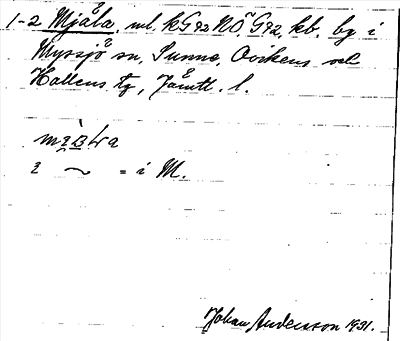 1-2 Mjåla, ml. kG92NÖG92 kb. by i
Myssjö sn, Sunne, Ovikens och
Hallens tg, Jämtl. l.
i ~ = i M.
Johan Andersson 1931.